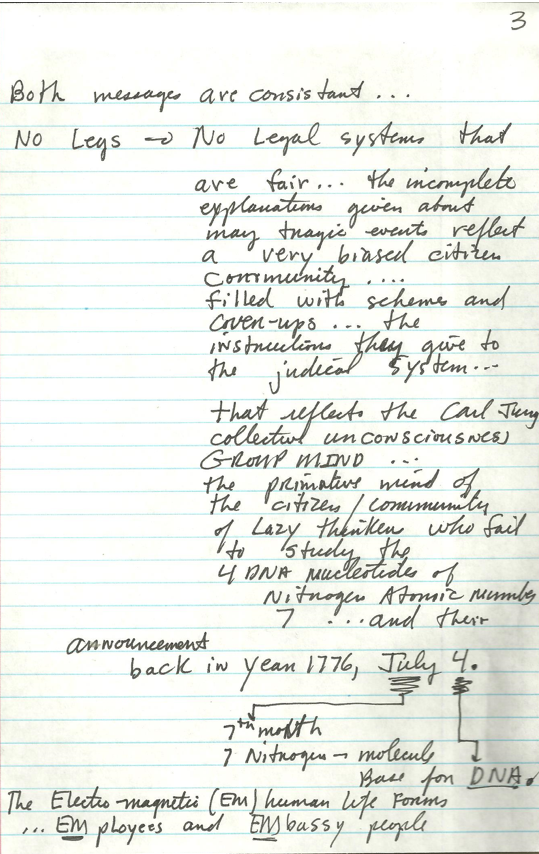 3
Both messages are consistant ...
NO Legs → No Legal systems that
are fair... the incomplete
explanations given about
may tragic events reflect
a very biased citizen
Community ....
filled with schemes and
cover-ups ... the
instructions they give to
the judical system...
that reflects the Carl Jung
collective unconsciousness
GROUP MIND ...
the primative mind of
the citizen/community
of Lazy thinker who fail
to study the
4 DNA nucleotides of
Nitrogen Atomic number
7 ....and their
announcement
back in year 1776, July 4.
7th month
7 Nitrogen - molecule
Base for DNA.
The Electro-magnetic (EM) human life Forms
... EMployees and EMbassy people